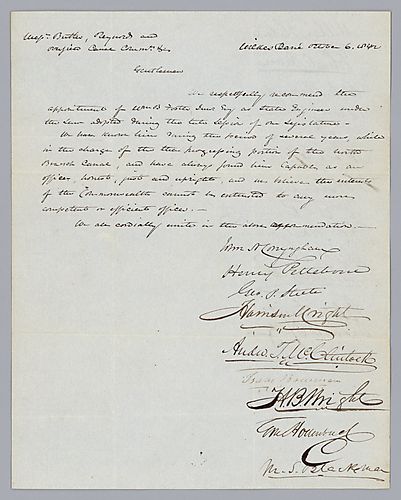 Messrs Butler, Reynolds and
Canal Comrs &c
Wilkes Barre October 6, 1842
Gentlemen
We respectfully recommend the
appointment of Wm B Foster Junr Esq as State Engineer under
the Law adopted during the late Session of our Legislature -
We have known him during the period of several years while
in the charge of the then progressing portion of the North
Branch Canal, and have always found him Capable as an
officer, honest, just and upright, and we believe the interests
of the Commonwealth cannot be entrusted to any more
competent or efficient officer. -
We all cordially unite in the above recommendation. -
Henry Pettebone
Harrison Wright
Andw. T. McClintock
Isaac Bowman
H. B. Wright
M. S. Blackman